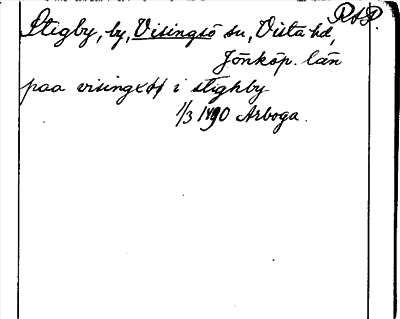 RAP.
Stigby, by, Visingsö sn, Vista hd,
Jönköp. län
paa visingxö i stighby
1/3 1490 Arboga.